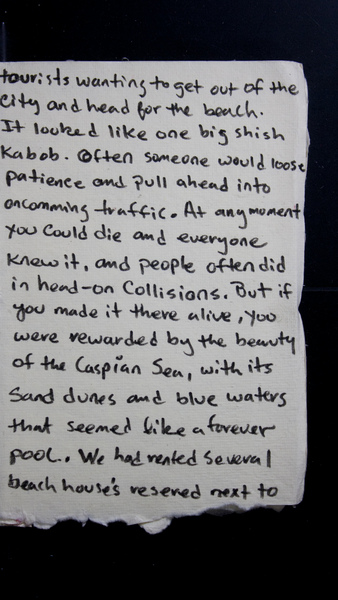 tourists wanting to get out of the
city and head for the beach.
It looked like one big shish
Kabob. Often someone would loose
patience and pull ahead into
oncomming traffic. At any moment
you could die and everyone
knew it, and people often did
in head-on Collisions. But if
you made it there alive, you
were rewarded by the beauty
of the Caspian Sea, with its
Sand dunes and blue waters
that seemed like a forever
pool. We had rented several
beach house's reserved next to